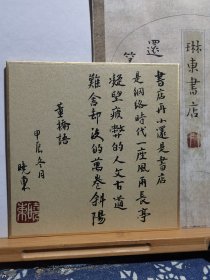 書店再小還是書店
是網絡時代一座風雨長亭
凝望疲弊的人文古道
難舍却後的萬卷斜陽
董橋語
甲辰冬月
曉東
還
笑
琳東書店